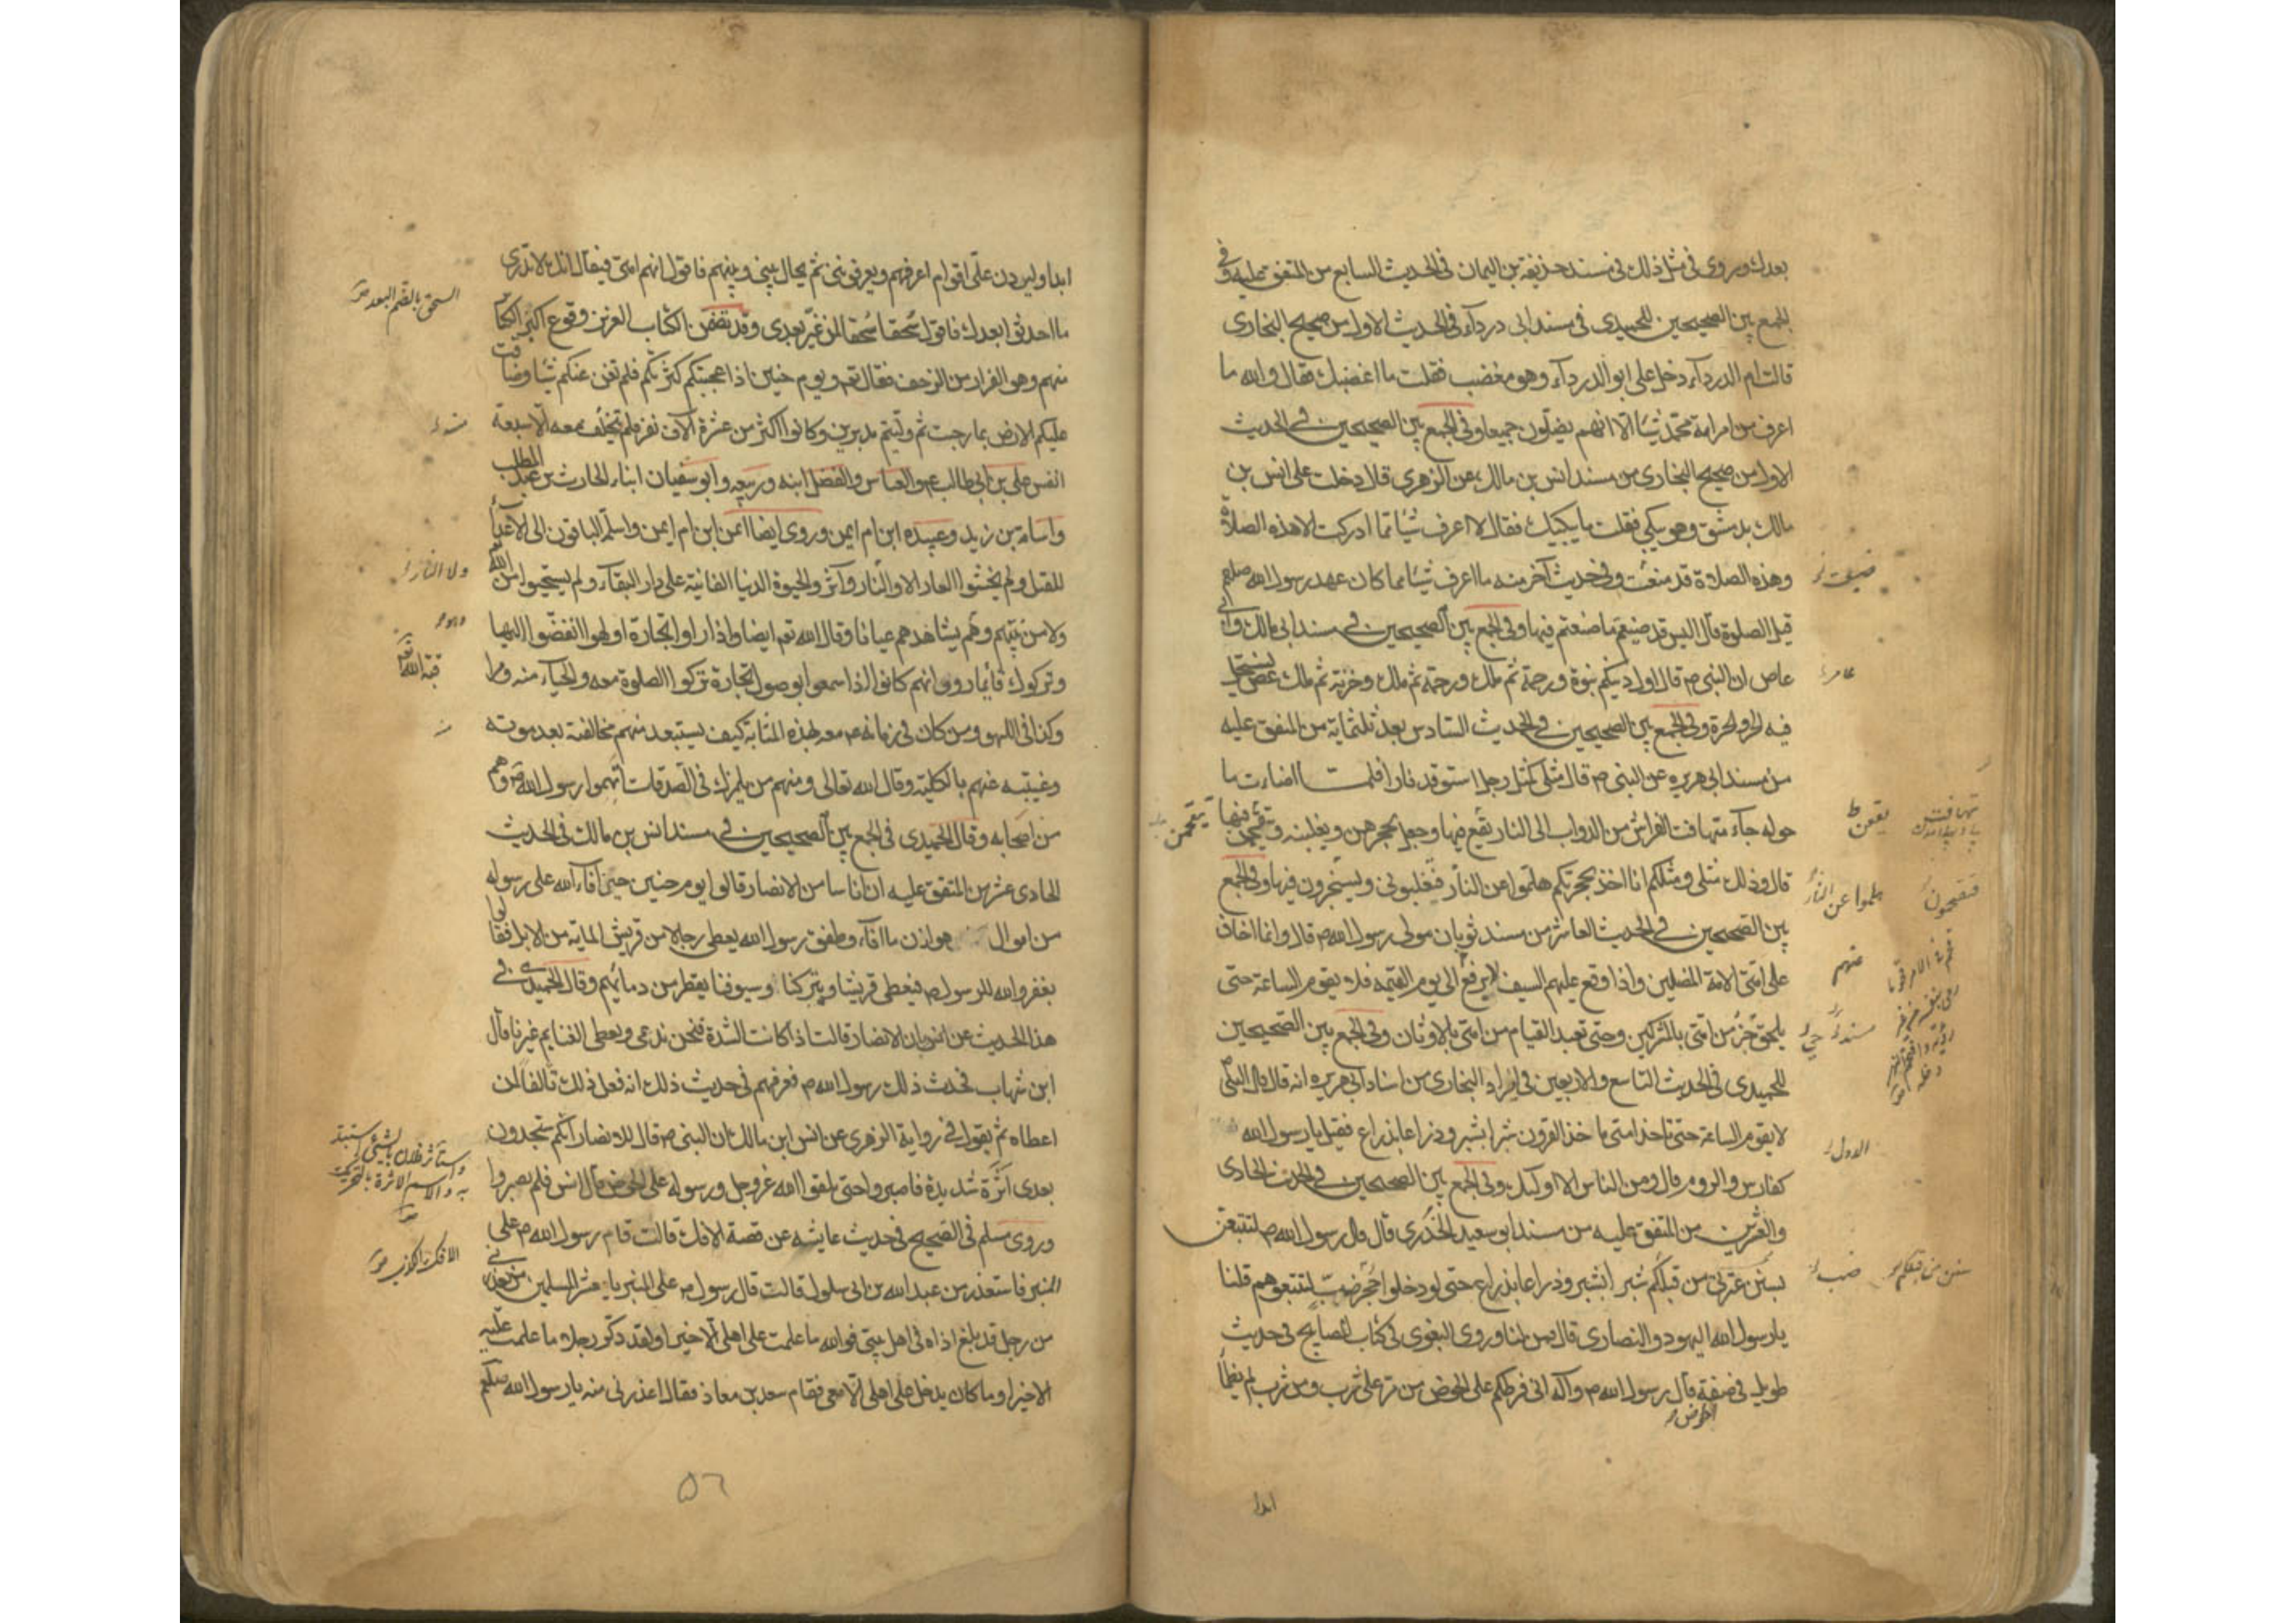 بعدك وروى فى مثل ذلك فى مسند حذيفة بن اليمان فى الحديث السابع من المتفق عليه وفى
الجمع بين الصحيحين للحميدى فى مسند ابى درداء فى الحديث الاول من صحيح البخارى
قالت ام الدرداء دخل على ابو الدرداء وهو مغضب فقلت ما اغضبك فقال والله ما
اعرف من امر امة محمد شيئا الا انهم يصلون جميعا وفى الجمع بين الصحيحين فى الحديث
الاول من صحيح البخارى من مسند انس بن مالك عن الزهرى قال دخلت على انس بن
مالك بدمشق وهو يبكى فقلت ما يبكيك فقال لا اعرف شيئا مما ادركت الا هذه الصلاة
وهذه الصلاة قد ضيعت وفى حديث آخر منه ما اعرف شيئا مما كان عهد رسول الله صلعم
ضيعت
قيل الصلوة قال اليس قد ضيعتم ما ضعتم فيها وفى الجمع بين الصحيحين فى مسند ابى مالك وابى
عاص ان النبى ص قال اول دينكم نبوة ورحمة ثم ملك ورحمة ثم ملك وخزية ثم ملك عض يستحل
عامر
فيه الحر والحرة وفى الجمع بين الصحيحين فى الحديث السادس بعد ثلثماية من المتفق عليه
من مسند ابى هريره عن النبى ص قال مثلى كمثل رجل استوقد نارا فلما اضاءت ما
حوله جاء متهافت الفراش من الدواب الى النار يقع فيها وجعل يحجزهن ويغلبنه فيها
يقعن
قال وذلك مثلى ومثلكم انا اخذ بحجزتكم هلموا عن النار فيغلبونى وفى الجمع
هلموا عن النار
بين الصحيحين فى الحديث العاشر من مسند ثوبان مولى رسول الله ص قال وانما اخاف
على امتى الائمة المضلين واذا وقع عليهم السيف لا يرفع الى يوم القيمة فلا يقوم الساعة حتى
عنهم
يلحق حى من امتى بالمشركين وحتى تعبد القيام من امتى بالاوثان وفى الجمع بين الصحيحين
للحميدى فى الحديث التاسع والاربعين فى افراد البخارى من اسناد ابى هريره انه قال قال النبى
لا يقوم الساعة حتى تاخذ امتى ما خذ القرون شبرا بشبر وذراعا بذراع فقيل يا رسول الله
كفارس والروم قال ومن الناس الا اولئك وفى الجمع بين الصحيحين فى الحديث الحادى
والعشرين من المتفق عليه من مسند ابو سعيد الخدرى قال قال رسول الله ص لتتبعن
بسنن من قبلكم شبرا بشبر وذراعا بذراع حتى لو دخلوا جحر ضب لتتبعوهم قلنا
سنن من قبلكم
يا رسول الله اليهود والنصارى قال فمن اذا وروى البغوى فى كتاب المصابيح فى حديث
طويل فى صفة قال رسول الله ص وآله انى فرطكم على الحوض من مر على شرب ومن شرب لم يظمأ
الحوض
ابدا
ابدا وليردن على اقوام اعرفهم ويعرفوننى ثم يحال بينى وبينهم فاقول انهم امتى فيقال انك لا تدرى
السحق بالضم البعد
ما احدثوا بعدك فاقول سحقا سحقا لمن غير بعدى وقد تضمن الكتاب العزيز وقوع اكبر الكبائر
منهم وهو الفرار من الزحف فقال تعه ويوم حنين اذ اعجبتكم كثرتكم فلم تغن عنكم شيئا وضاقت
عليكم الارض بما رحبت ثم وليتم مدبرين وكانوا اكثر من عشرة آلاف نفر فلم يتخلف معه الا سبعة
انفس على بن ابى طالب ع والعباس والفضل ابنه وربيعه وابو سفيان ابناء الحارث بن عبد المطلب
واسامة بن زيد وعبيده ابن ام ايمن وروى ايضا ايمن ابن ام ايمن واسلم الباقون الى الاعداء
للقتل ولم يخشوا العار الاول النار وآثروا الحيوة الدنيا الفانية على دار البقاء ولم يستحيوا من الله
ولا النار
ولا من نبيهم وهم يشاهدهم عيانا وقال الله تعه ايضا واذا راوا تجارة او لهوا انفضوا اليها
وتركوك قائما رووا انهم كانوا اذا سمعوا بوصول تجارة تركوا الصلوة معه والحياء منه
وكذا فى اللهو ومن كان فى زمانه ص معه بهذه المثابة كيف يستبعد منهم مخالفته بعد موته
وغيبته عنهم بالكلية وقال الله تعالى ومنهم من يلمزك فى الصدقات اتهموا رسول الله ص وهم
من اصحابه وقال الحميدى فى الجمع بين الصحيحين فى مسند انس بن مالك فى الحديث
الحادى عشر من المتفق عليه ان اناسا من الانصار قالوا يوم حنين حين افاء الله على رسوله
من اموال هوازن ما افاء وطفق رسول الله يعطى رجالا من قريش الماية من الابل فقالوا
يغفر الله لرسول ص يعطى قريشا ويتركنا وسيوفنا يقطر من دمائهم وقال الحميدى فى
هذا الحديث عن انس ان الانصار قالت اذا كانت الشدة فنحن ندعى ويعطى الغنايم غيرنا قال
ابن شهاب فحدث ذلك رسول الله ص فعرفهم فى حديث ذلك انه فعل ذلك تالفا لمن
اعطاه ثم يقول فى رواية الزهرى عن انس ابن مالك ان النبى ص قال للانصار انكم ستجدون
بعدى اثرة شديدة فاصبروا حتى تلقوا الله عز وجل ورسوله على الحوض قال انس فلم نصبروا
وروى مسلم فى الصحيح فى حديث عايشه عن قصة الافك قالت قام رسول الله ص على
الافك الكذب
المنبر فاستعذر من عبد الله بن ابى سلول قالت قال رسول ص على المنبر يا معشر المسلمين من يعذرنى
من رجل قد بلغ اذاه فى اهل بيتى فوالله ما علمت على اهلى الا خيرا ولقد ذكروا رجلا ما علمت عليه
الا خيرا وما كان يدخل على اهلى الا معى فقام سعد بن معاذ فقال اعذرنى منه يا رسول الله صلعم
٥٦